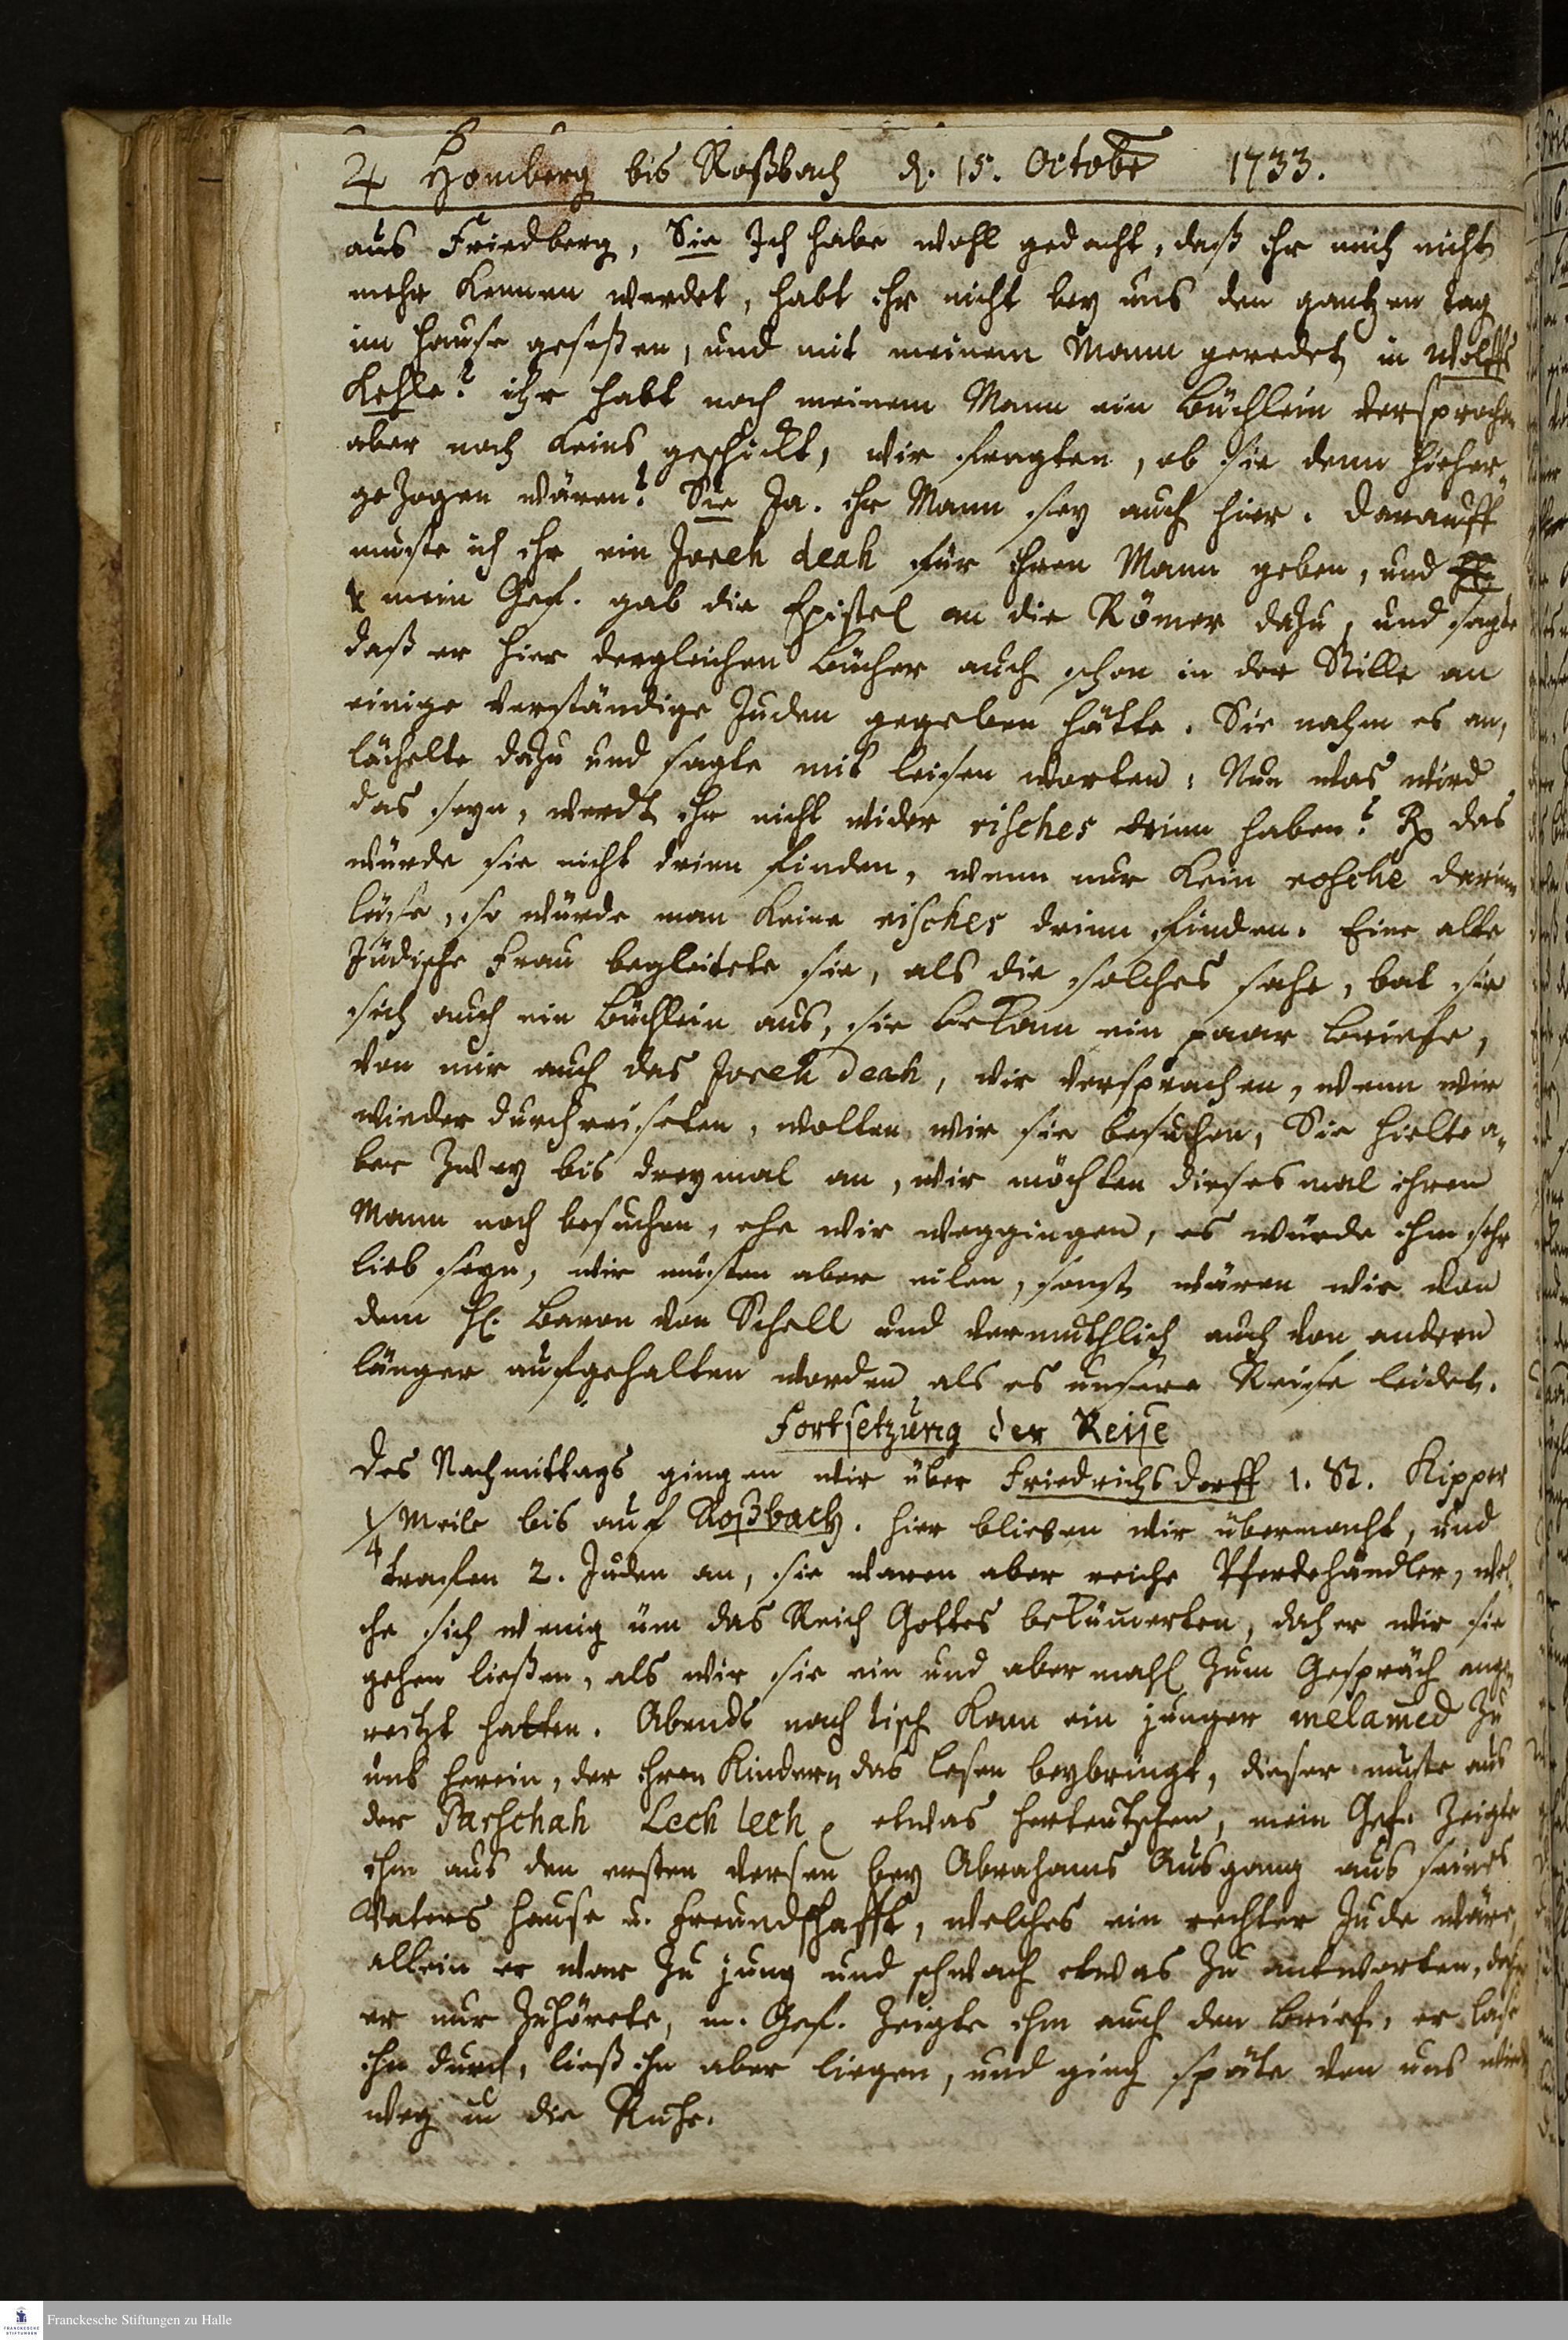 24 Homberg bis Roßbach d. 15. Octobr 1733.
aus Friedberg, Sie Ich habe wohl gedacht, daß ihr mich nicht
mehr kennen werdet, habt ihr nicht bey uns den gantzen tag
im Hause geseßen, und mit meinem Mann geredet in Wolffs
Kehle? ihr habt noch meinem Mann ein Büchlein versprochen
aber noch keins geschickt, wir fragten, ob sie denn hieher„
gezogen wären? Sie Ja. ihr Mann sey auch hier. Darauff
muste ich ihr ein Joreh deah für ihren Mann geben, und
mein Gef. gab die Epistel an die Römer dazu, und sagte
daß er hier dergleichen Bücher auch schon in der Stille an
einige verständige Juden gegeben hätte. Sie nahm es an,
lächelte dazu und sagte mit leisen worten: Nun was wird
das seyn, werdt ihr nicht wider risches drinn haben? R das
würde sie nicht drinn finden, wenn nur kein rosche darinn
läse, so würde man keine risches drinn finden. Eine alte
Jüdische Frau begleitete sie, als die solches sahe, bat sie
sich auch ein Büchlein aus, sie bekam ein paar Briefe,
von mir auch das Joreh deah, wir versprachen, wenn wir
wieder durchreiseten, wolten wir sie besuchen, Sie hielte a„
ber zwey bis dreymal an, wir möchten dieses mal ihren
Mann noch besuchen, ehe wir weggingen, es würde ihm sehr
lieb seyn, wir müsten aber eilen, sonst wären wir von
dem H. Baron von Schell und vermuthlich auch von andern
länger aufgehalten worden als es unsere Reise leidet.
Fortsetzung der Reise
Des Nachmittags gingen wir über Friedrichsdorff 1. St. Kipper
1/4 Meile bis auf Roßbach. hier blieben wir übernacht, und
trafen 2. Juden an, sie waren aber reiche Pferdehändler, wel„
che sich wenig üm das Reich Gottes bekümerten, daher wir sie
gehen ließen, als wir sie ein und abermahl zum Gespräch ange
reitzt hatten. Abends nach tisch kam ein junger melamed zu
uns herein, der ihren Kindern das lesen beybringt, dieser muste aus
der Parschah Lech lech etwas herteutschen, mein Gef. zeigte
ihm aus den ersten versen bey Abrahams Ausgang aus seines
Vaters Hause u. Freundschafft, welches ein rechter Jude wäre,
allein er war zu jung und schwach etwas zu antworten, daher
er nur zuhörete, m. Gef. zeigte ihm auch den Brief, er lase
ihn durch, ließ ihn aber liegen, und ging späte von uns wieder
weg in die Ruhe.
Franckesche Stiftungen zu Halle